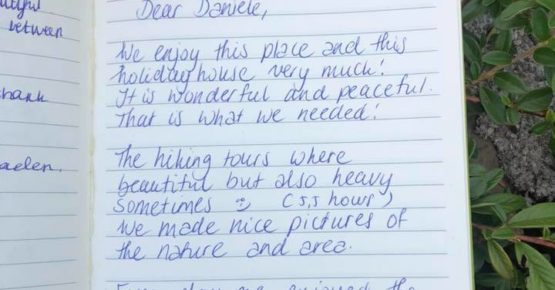 utiful
between
thank
aelen.
Dear Daniele,
We enjoy this place and this
holiday house very much!
It is wonderful and peaceful.
That is what we needed!
The hiking tours where
beautiful but also heavy
sometimes :) (5,5 hours)
We made nice pictures of
the nature and area.
enjoyed the